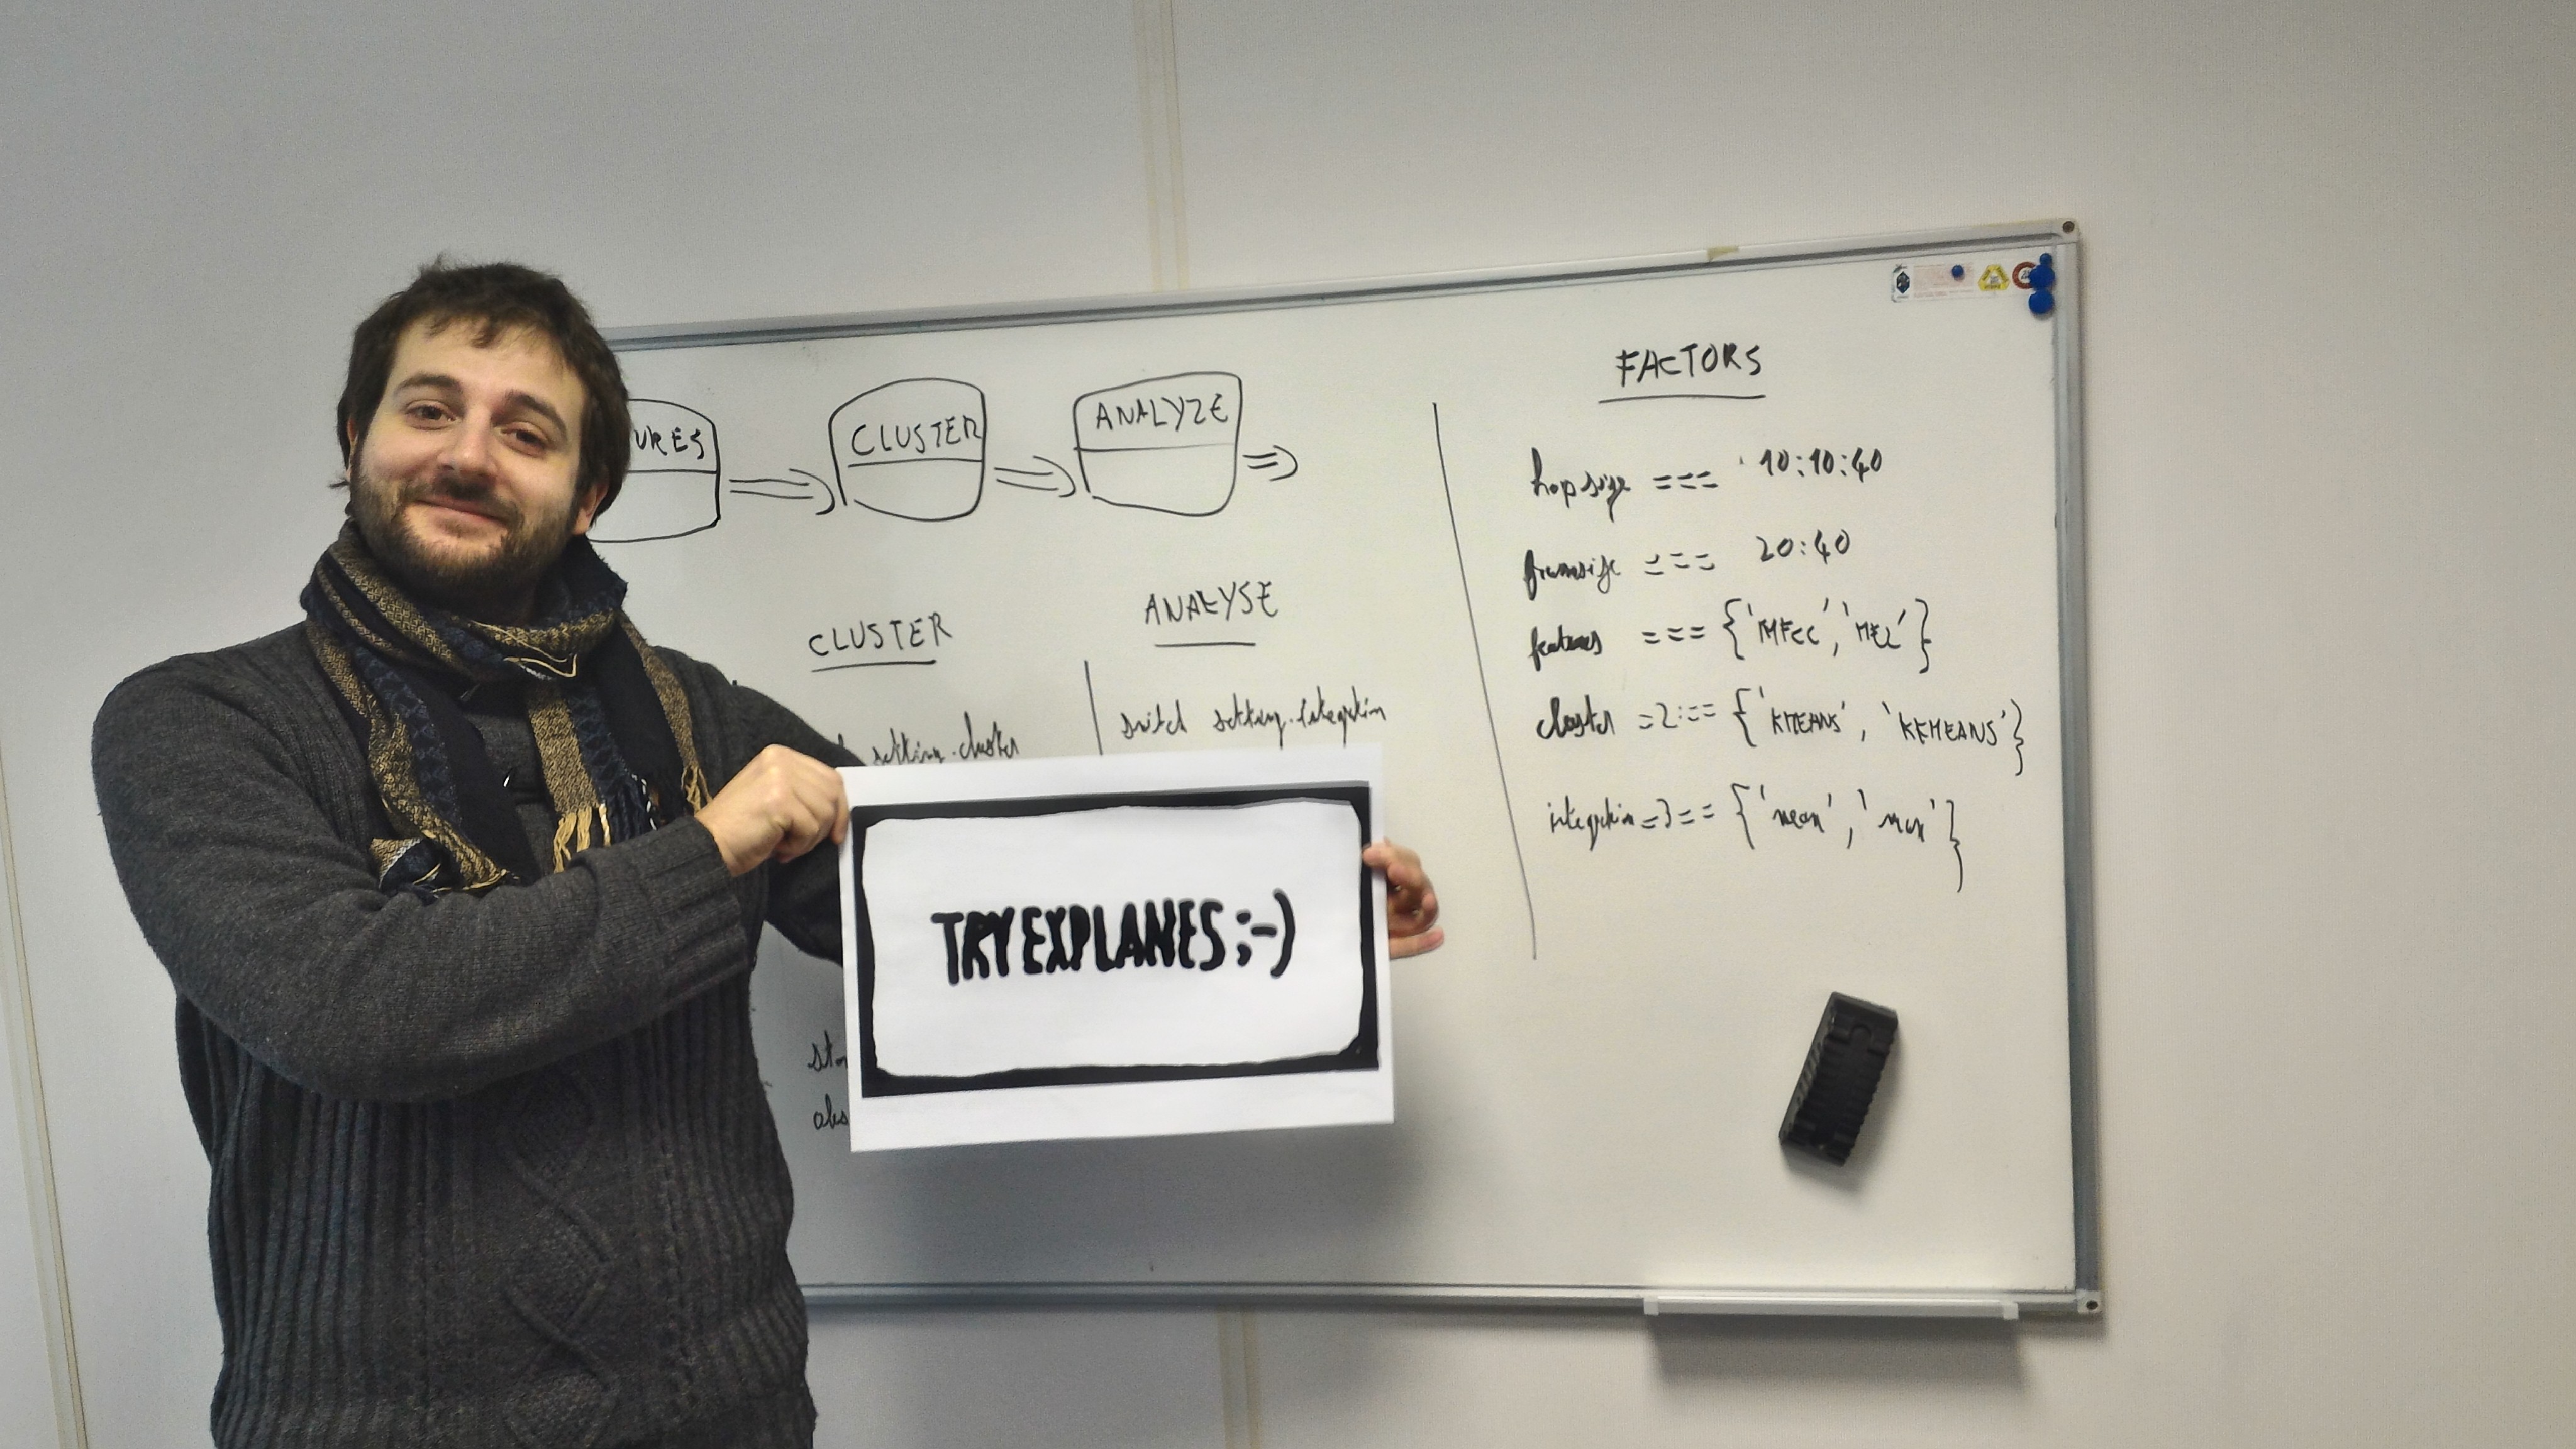 URES
CLUSTER
ANALYZE
CLUSTER
setting.cluster
ANALYSE
switch setting.integration
FACTORS
hopsize === 10:10:40
framesize === 20:40
features === {'MFCC', 'MEL'}
cluster =2:== {'KMEANS', 'KKMEANS'}
integration =3== {'mean', 'max'}
TRY EXPLANES ;-)
sto
obs